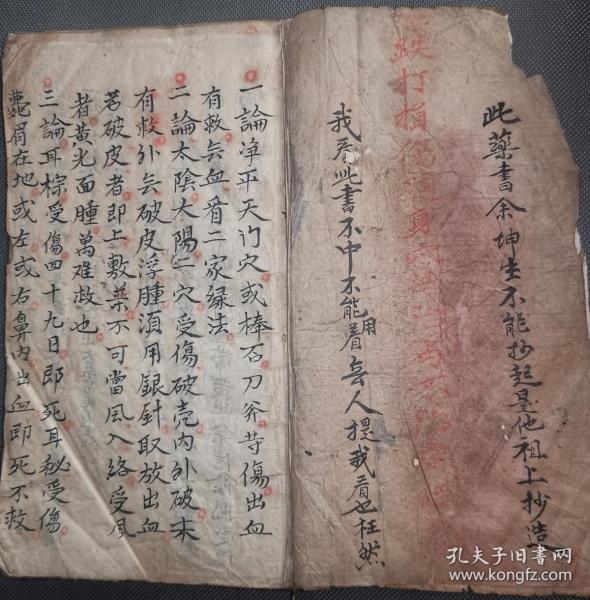 此藥書余坤生不能抄起是他祖上抄造
跌打損傷
我看此書不中不能着用無人提我看也枉然
一論净平天门穴或棒石刀斧等傷出血
有救無血看二家緣法
二論太陰太陽二穴受傷破壳内外破未
有救外無破皮浮腫須用銀針取放出血
若破皮者即上敷藥不可當風入絡受风
者黄光面腫萬难救也
三論耳棕受傷四十九日即死耳秘受傷
眉在地或左或右鼻内出血即死不救
孔夫子旧书网
www.kongfz.com